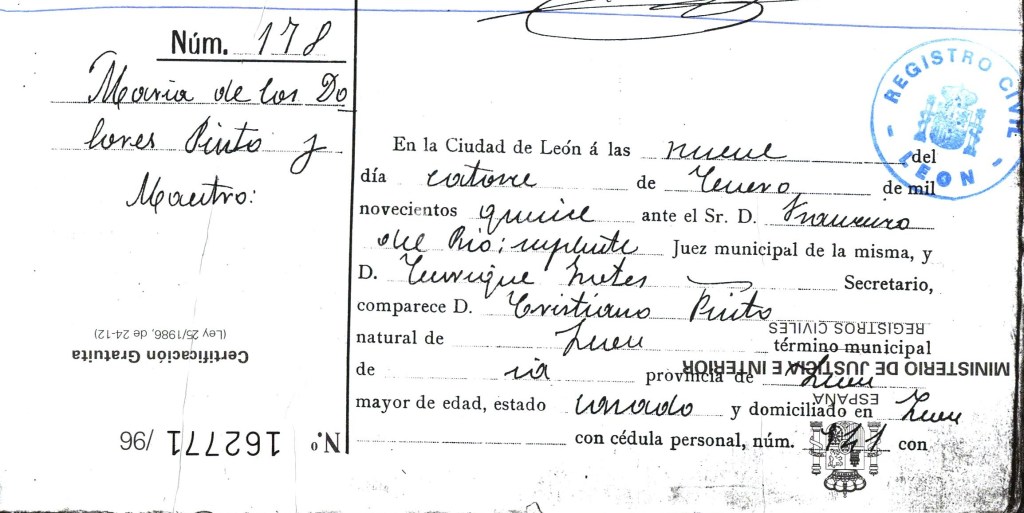 Núm. 178
Maria de los Do
lores Pinto y
Maestro:
REGISTRO CIVIL
LEON
En la Ciudad de León á las nueve del
día catorce de Enero de mil
novecientos quince ante el Sr. D. Francisco
del Rio; suplente Juez municipal de la misma, y
D. Enrique Secretario,
comparece D. Cristiano Pinto
natural de Leon término municipal
de id provincia de Leon
mayor de edad, estado casado y domiciliado en Leon
con cédula personal, núm. 141 con
N.º 162771 /96
Certificación Gratuita
(Ley 25/1986, de 24-12)
ESPAÑA
MINISTERIO DE JUSTICIA E INTERIOR
REGISTROS CIVILES